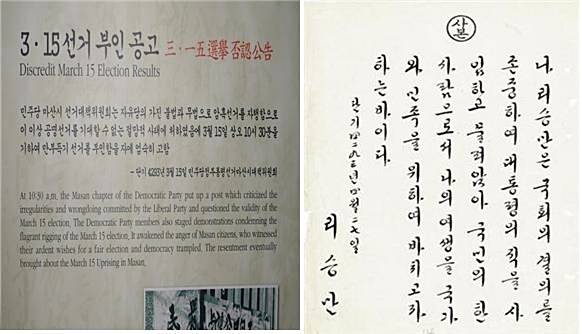 3·15 선거 부인 공고 三·一五選擧否認公告
Discredit March 15 Election Results
민주당 마산시 선거대책위원회는 자유당의 가진 불법과 무법으로 암흑선거를 자행함으로
이 이상 공명선거를 기대할 수 없는 절망적 사태에 처하였음에 3월 15일 상오 10시 30분을
기하여 만부득이 선거를 부인함을 자에 엄숙히 고함
- 단기 4293년 3월 15일 민주당정부통령선거마산시대책위원회
At 10:30 a.m, the Masan chapter of the Democratic Party put up a post which criticized the
irregularities and wrongdoing committed by the Liberal Party and questioned the validity of the
March 15 election. The Democratic Party members also staged demonstrations condemning the
flagrant rigging of the March 15 election. It awakened the anger of Masan citizens, who witnessed
their ardent wishes for a fair election and democracy trampled. The resentment eventually
brought about the March 15 Uprising in Masan.
사본
나, 리승만은 국회의 결의를
존중하여 대통령의 직을 사
임하고 물러앉아 국민의 한
사람으로서 나의 여생을 국가
와 민족을 위하여 바치고자
하는바이다
단기四二九三년四월二七일
리승만